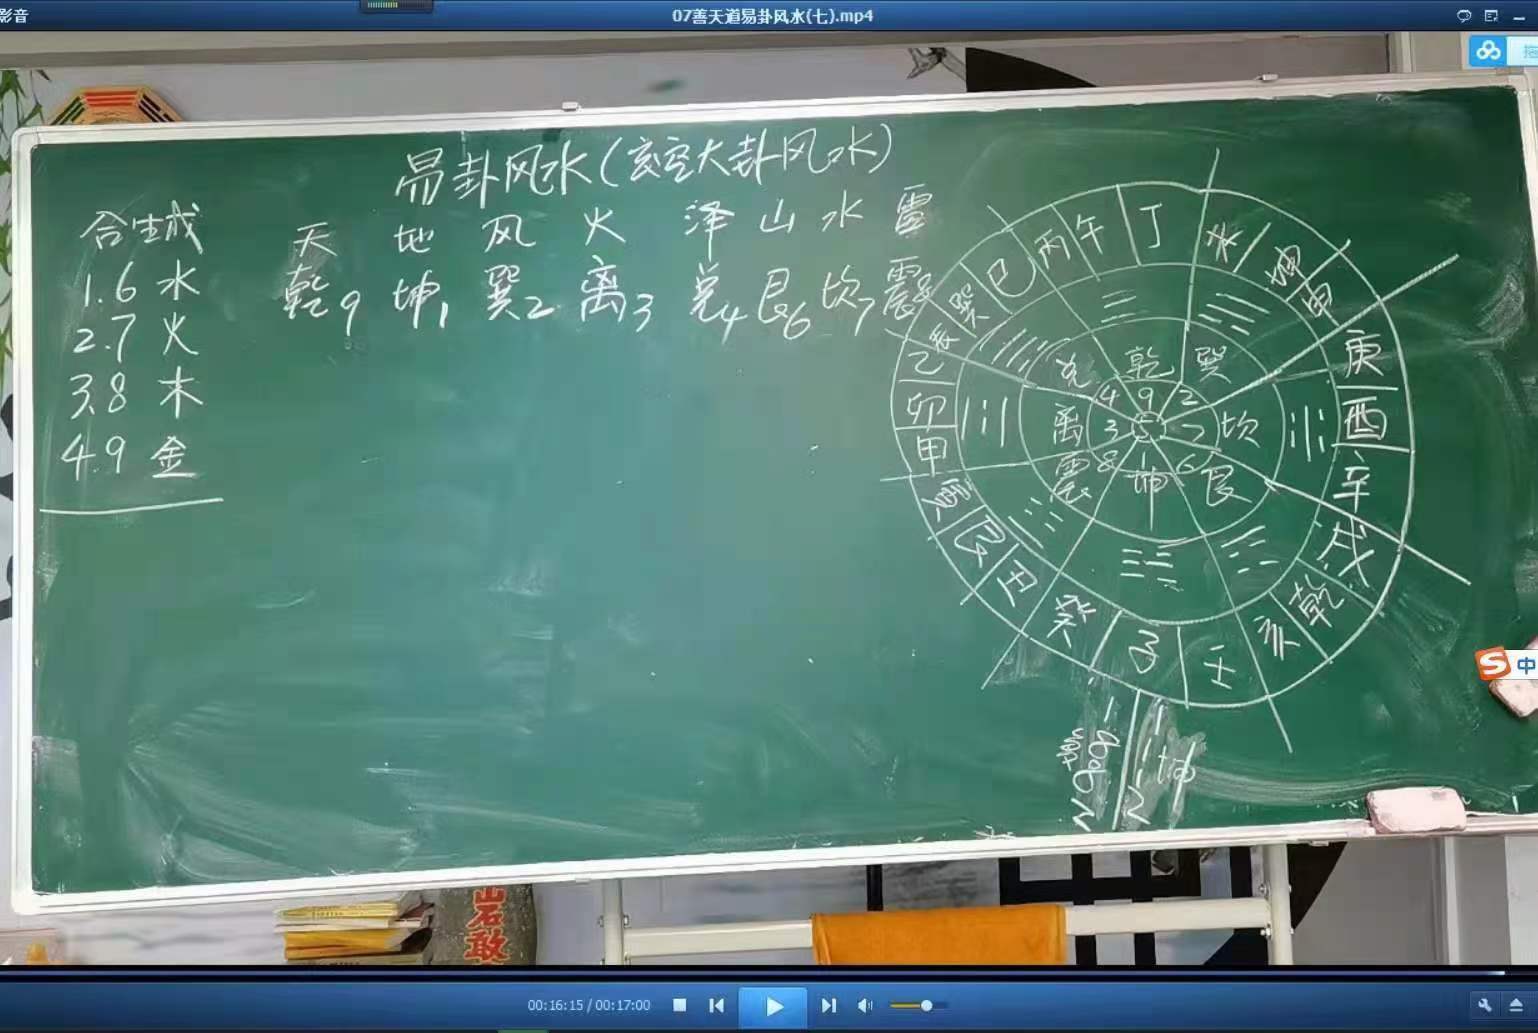 影音
07善天道易卦风水(七).mp4
易卦风水(玄空大卦风水)
合生成
1.6 水
2.7 火
3.8 木
4.9 金
天 地 风 火 泽 山 水 雷
乾9 坤1 巽2 离3 兑4 艮6 坎7 震8
巽 巳 丙 午 丁 未 坤 申
庚 酉 辛 戌 乾 亥
壬 子 癸 丑 艮 寅
甲 卯 乙 辰
兑 乾 巽
4 9 2
离 3 5 7 坎
8 1 6
震 坤 艮
坤
岩敢
中
00:16:15 / 00:17:00